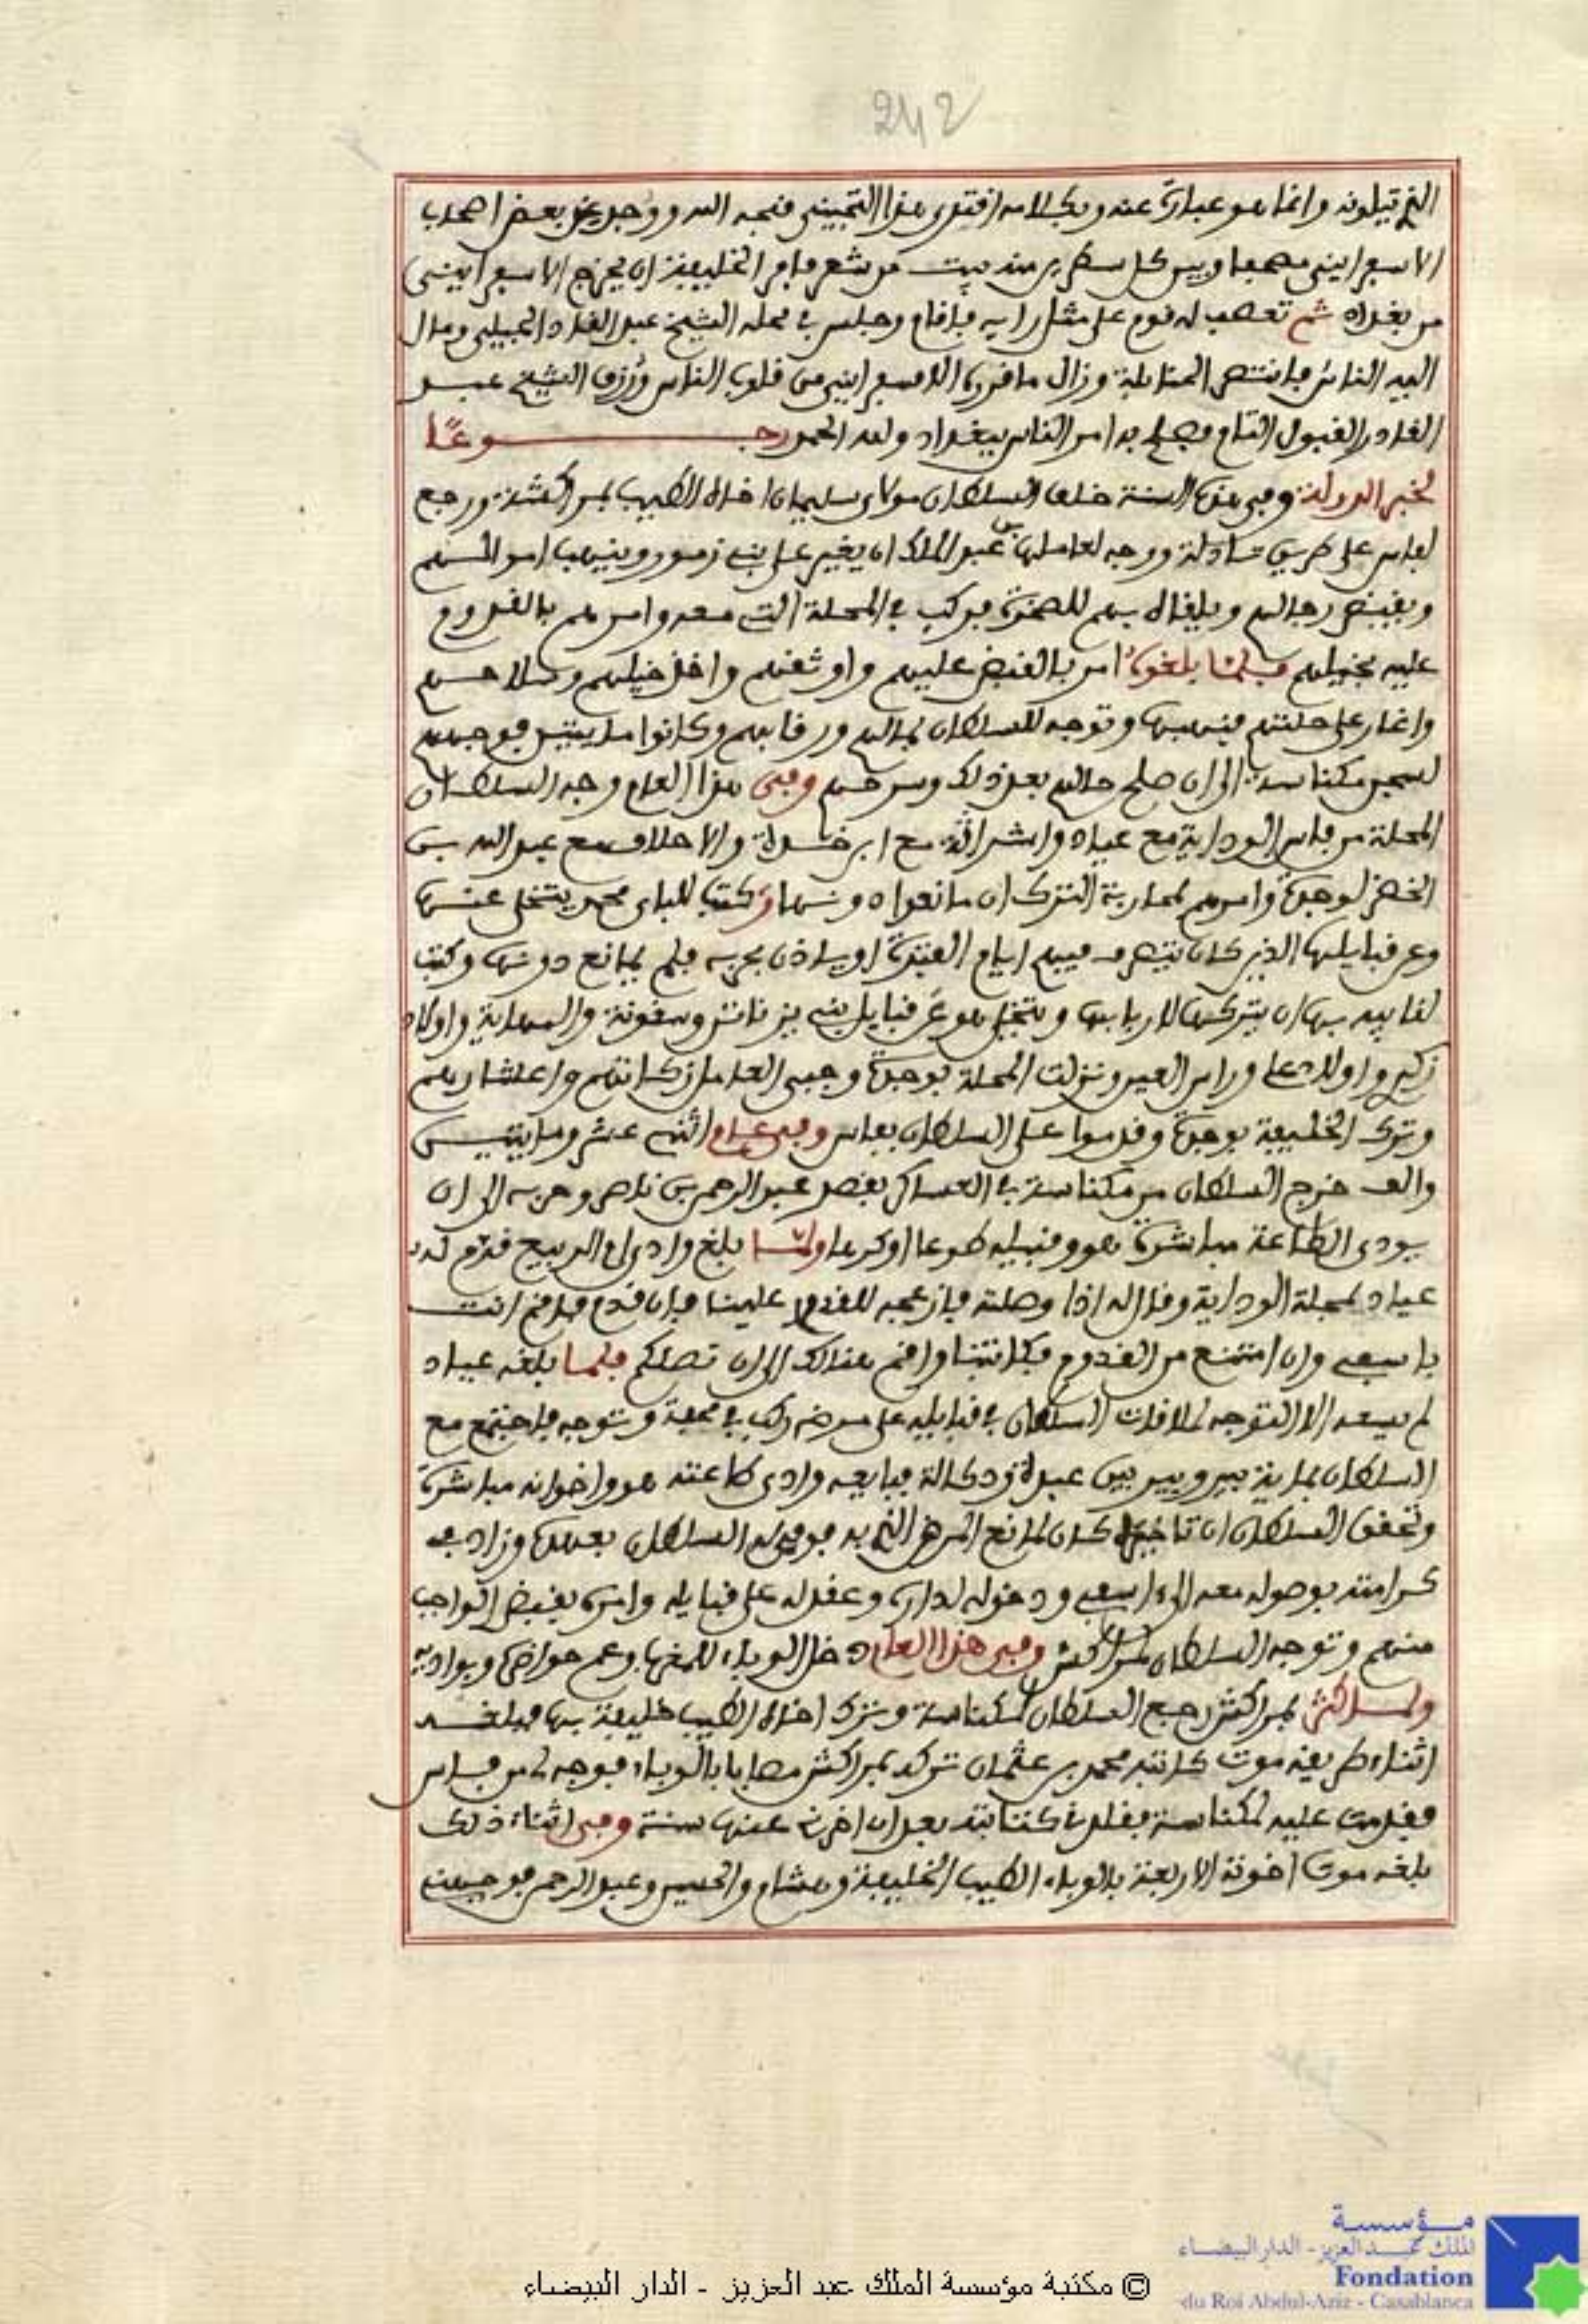 242
الذي تتلونه وانما هو عبارة عنه وبكلامه افتتن هذا التجيبي فنجه الله ووجد يحي بعض اصحاب
الاسفرايني مصحفا وبين كل سطرين منه بيت من شعر فامر الخليفة ان يخرج الاسفرايني
من بغداد ثم تعصب له قوم على مثل رايه فاقام وجلس في محله الشيخ عبد القادر الجيلي ومال
اليه الناس فانتصر الحنابلة وزال ما قرره الاسفرايني من قلوب الناس ورزق الشيخ عبد
القادر القبول التام فصلح به امر الناس ببغداد ولله الحمد رجـــوعًا
لخبر الدولة وفي هذه السنة خلف السلطان مولاي سليمان اخاه الطيب بمراكشة ورجع
لفاس على طريق تادلة ووجه لعاملها بن عبد الملك ان يغير على بني زمور وينهب اموالهم
ويقبض رجالهم ويلقاه بهم للصخرة فركب في المحلة التي معه وامرهم بالقدوم
عليه بخيلهم فلما بلغوه امر بالقبض عليهم واوثقهم واخذ خيلهم وسلاحهم
واغار على حلتهم فنهبها وتوجه للسلطان بمالهم ورقابهم وكانوا مايتين فوجههم
لسجن مكناسة الى ان صلح حالهم بعد ذلك وسرحهم وفي هذا العام وجه السلطان
المحلة من فاس الودايه مع عياد واشراقة مع ابن خدة والاحلاف مع عبد الله بن
الخضر لوجدة وامرهم لمحاربة الترك ان مانعوا دونها وكتب للباي محمد يتخلى عنها
وعن قبايلها الذين كان يتصرف فيهم ايام الفترة او ياذن بحربه فلم يمانع دونها وكتب
لقايده بها ان يتركها لاربابها ويتخلى هو عن قبايل بني يزناتن وسقونة والمهاية واولاد
زكير واولاد على وراس العين ونزلت المحلة بوجدة وجبى العامل زكاتهم واعشارهم
وترك الخليفة بوجدة وقدموا على السلطان بفاس وفي عام اثني عشر ومايتين
والف خرج السلطان من مكناسة في العساكر بقصد عبد الرحمن بن ناصر وحربه الى ان
يودى الطاعة مباشرة هو وقبيله طوعا او كرها ولما بلغ وادي ام الربيع قدم له
عياد لمحلة الودايه وقال له اذا وصلته فازعجه للقدوم علينا فان قدم فاقم انت
باسفي وان امتنع من القدوم فكاتبنا واقم هنالك الى ان تصلكم فلما بلغه عياد
لم يسعه الا التوجه لملاقات السلطان في قبايله على مرضه ركب في محفة وتوجه فاجتمع مع
السلطان بماية بير وبير بين عبدة ودكالة فبايعه وادى طاعته هو واخوانه مباشرة
وتحقق السلطان ان تاخيره كان لمانع المرض الذي به فوفى له السلطان بعهده وزاد في
كرامته بوصوله معه الى اسفي ودخوله لداره وعقد له على قبايله وامره بقبض الواجب
منهم وتوجه السلطان لمراكش وفي هذا العام دخل الوباء للمغرب وعم حواضره وبواديه
ولما كثر بمراكش رجع السلطان لمكناسة وترك اخاه الطيب خليفة بها فبلغه
اثناء طريقه موت كاتبه محمد بن عثمان تركه بمراكش مصابا بالوباء فوجه لي من فاس
فقدمت عليه لمكناسة فقلدني كتابته بعد ان اخرني عنها سنة وفي اثناء ذلك
بلغه موت اخوته الاربعة بالوباء الطيب الخليفة وهشام والحسين وعبد الرحمن فوجهني
مؤسسة
الملك عبد العزيز - الدار البيضاء
Fondation
du Roi Abdul-Aziz - Casablanca
© مكتبة مؤسسة الملك عبد العزيز - الدار البيضاء